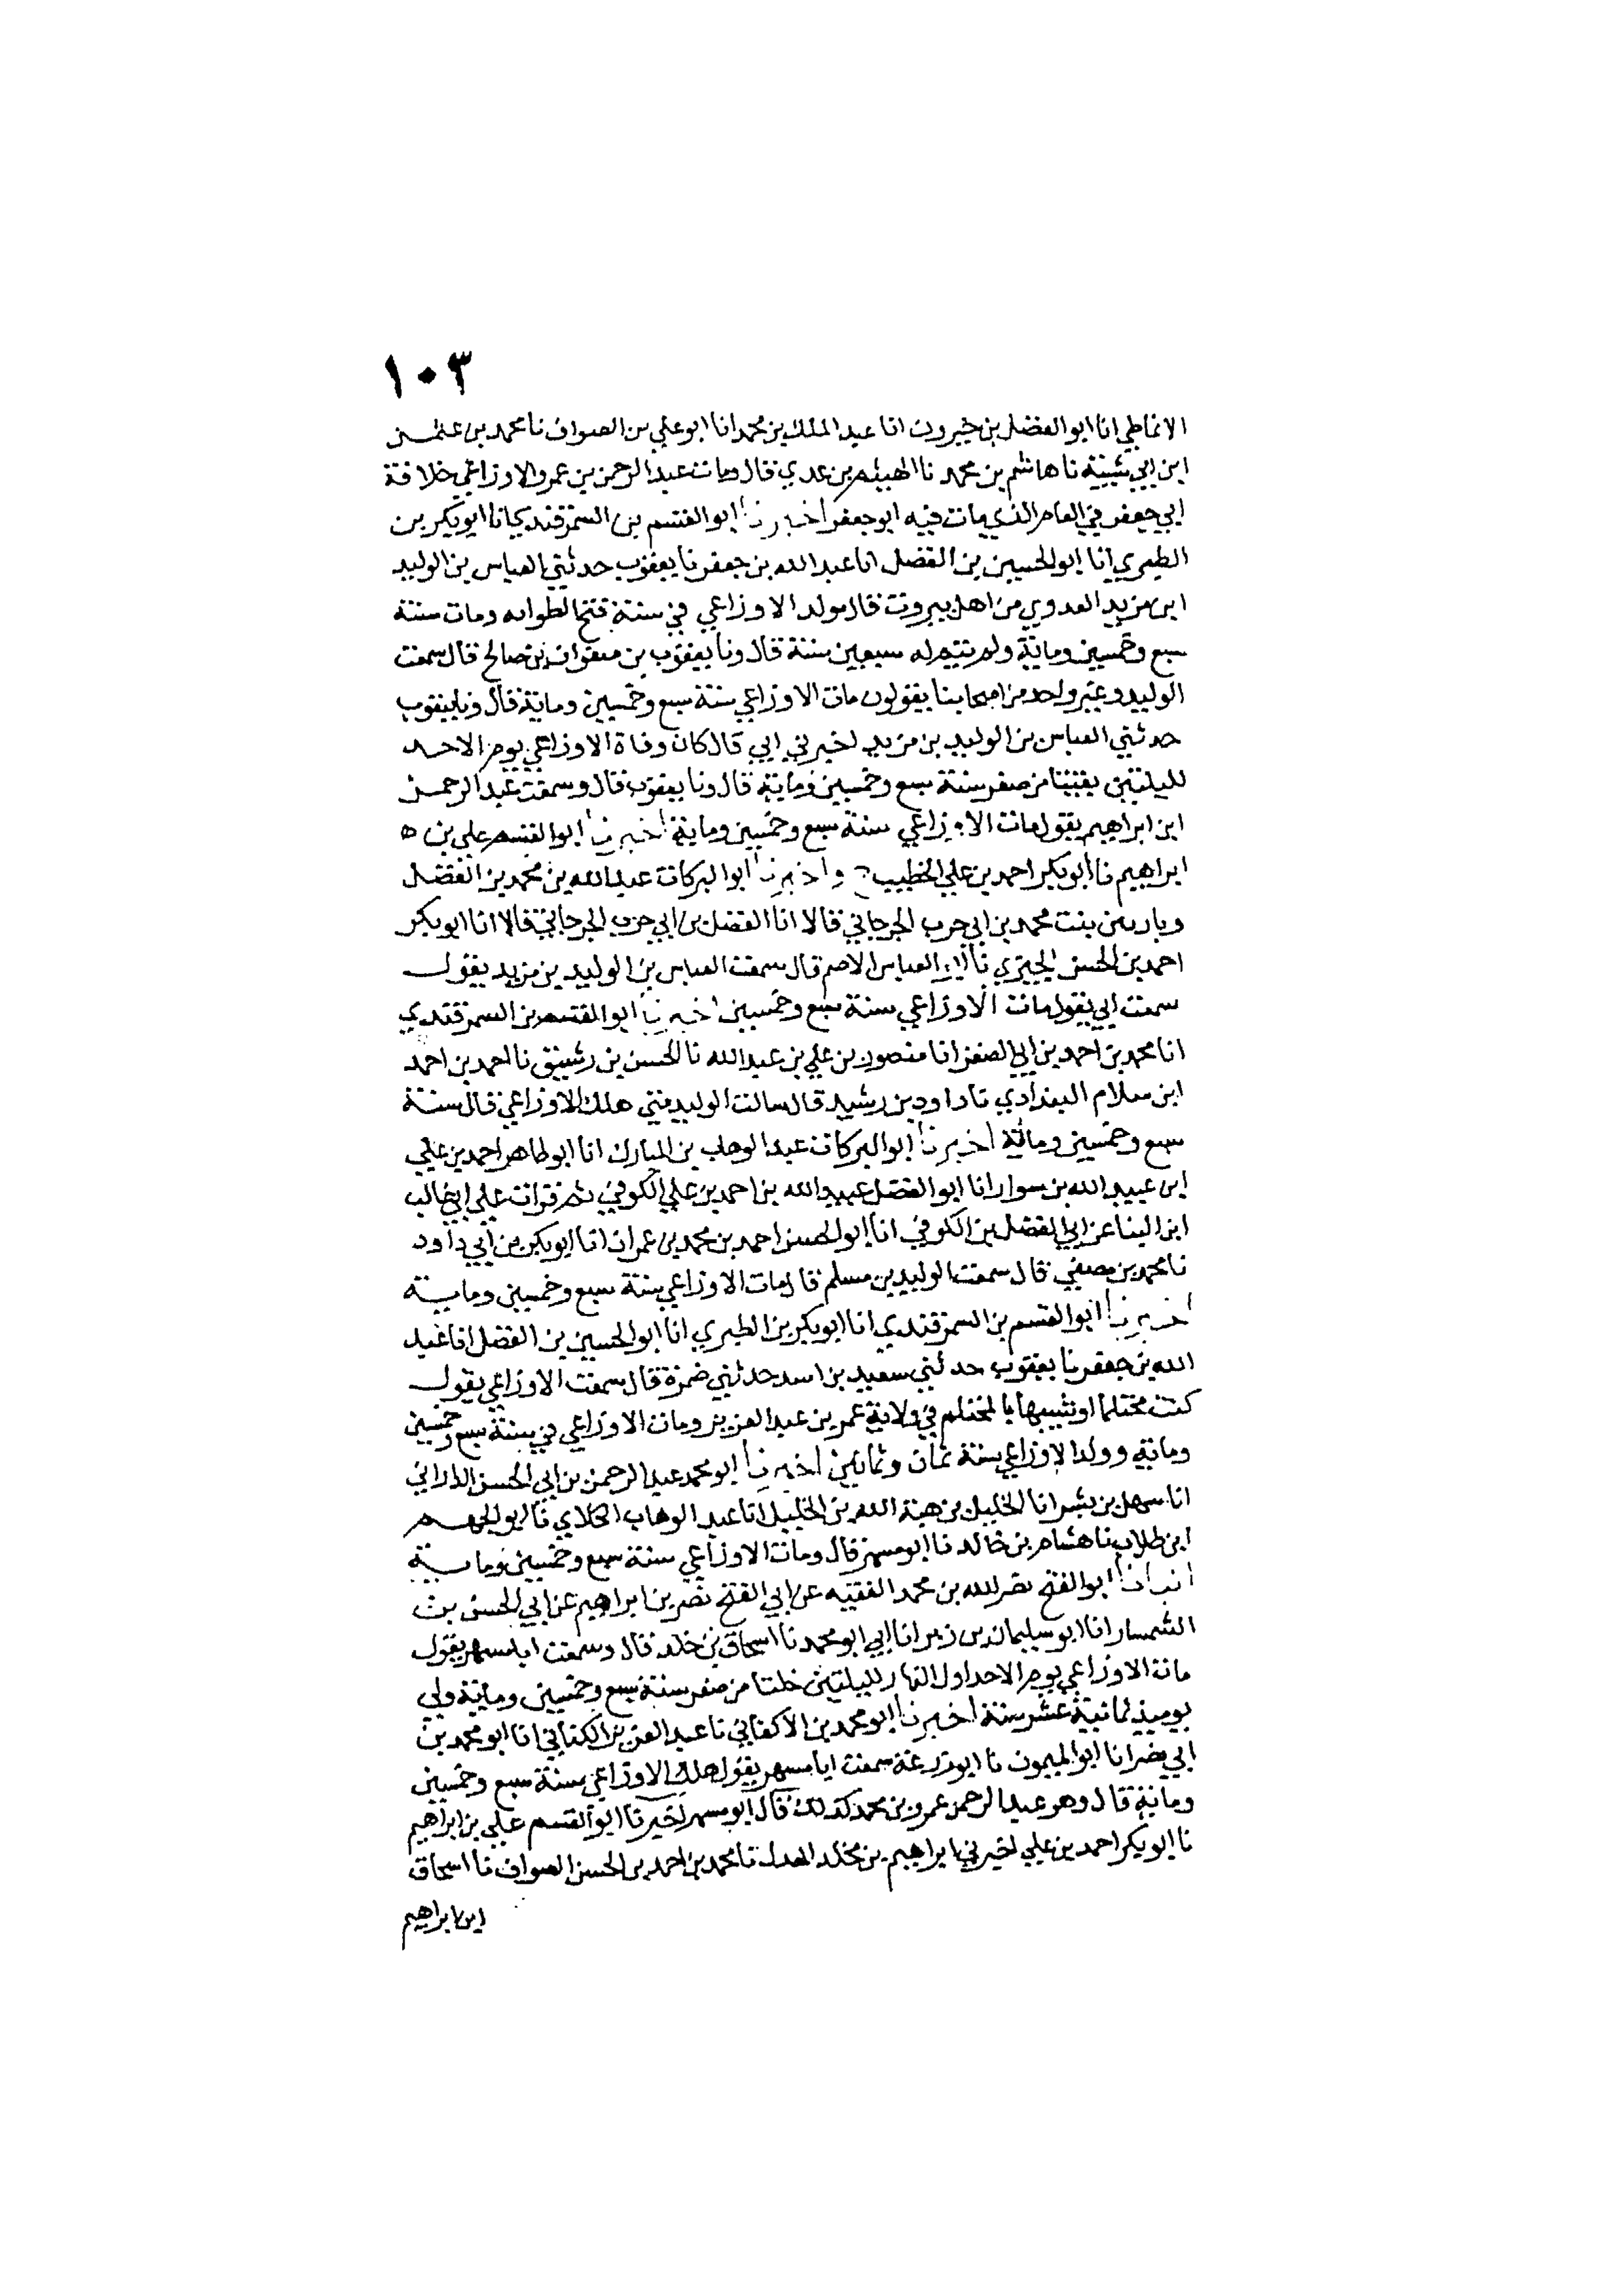 ١٠٣
الانماطي انا ابو الفضل بن خيرون انا عبد الملك بن محمد انا ابو علي بن الصواف نا محمد بن عثمن
ابن ابي شيبة نا هاشم بن محمد نا الهيثم بن عدي قال ومات عبد الرحمن بن عمرو الاوزاعي خلافة
ابي جعفر في العام الذي مات فيه ابو جعفر اخبرنا ابو القسم بن السمرقندي انا ابو بكر بن
الطبري انا ابو الحسين بن الفضل انا عبد الله بن جعفر نا يعقوب حدثني العباس بن الوليد
ابن مزيد العدوي من اهل بيروت قال مولد الاوزاعي في سنة فتح الطوانه ومات سنة
سبع وخمسين وماية ولم يتم له سبعين سنة قال ونا يعقوب بن صفوان بن صالح قال سمعت
الوليد وغير واحد من اصحابنا يقولون مات الاوزاعي سنة سبع وخمسين وماية قال ونا يعقوب
حدثني العباس بن الوليد بن مزيد اخبرني ابي قال كان وفاة الاوزاعي يوم الاحد
لليلتين بقيتا من صفر سنة سبع وخمسين وماية قال ونا يعقوب قال وسمعت عبد الرحمن
ابن ابراهيم يقول مات الاوزاعي سنة سبع وخمسين وماية اخبرنا ابو القسم علي بن ه
ابراهيم نا ابو بكر احمد بن علي الخطيب ح واخبرنا ابو البركات عبد الله بن محمد بن الفضل
وبنت محمد بن ابي حرب الجرجاني قالا انا الفضل بن ابي حرب الجرجاني قالا انا ابو بكر
احمد بن الحسن الحيري نا ابو العباس الاصم قال سمعت العباس بن الوليد بن مزيد يقول
سمعت ابي يقول مات الاوزاعي سنة سبع وخمسين اخبرنا ابو القسم بن السمرقندي
انا محمد بن احمد بن ابي الصقر انا منصور بن علي بن عبد الله نا الحسن بن رشيق نا احمد بن احمد
ابن سلام البغدادي نا داود بن رشيد قال سالت الوليد متي هلك الاوزاعي قال سنة
سبع وخمسين وماية اخبرنا ابو البركات عبد الوهاب بن المبارك انا ابو طاهر احمد بن علي
ابن عبيد الله بن سوار انا ابو الفضل عبيد الله بن احمد بن علي الكوفي ثم قرات علي ابي غالب
ابن البنا عن ابي الفضل بن الكوفي انا ابو الحسن احمد بن محمد بن عمران انا ابو بكر بن ابي داود
نا محمد بن مصفي قال سمعت الوليد بن مسلم قال مات الاوزاعي سنة سبع وخمسين وماية
اخبرنا ابو القسم بن السمرقندي انا ابو بكر بن الطبري انا ابو الحسين بن الفضل انا عبد
الله بن جعفر نا يعقوب حدثني سعيد بن اسد حدثني ضمرة قال سمعت الاوزاعي يقول
كنت محتلما او شبيها بالمحتلم في ولاية عمر بن عبد العزيز ومات الاوزاعي في سنة سبع وخمسين
وماية وولد الاوزاعي سنة ثمان وثمانين اخبرنا ابو محمد عبد الرحمن بن ابي الحسن الداراني
انا سهل بن بشر انا الخليل بن هبة الله بن الخليل انا عبد الوهاب الكلابي نا ابو الجهم
ابن طلاب نا هشام بن خالد نا ابو مسهر قال ومات الاوزاعي سنة سبع وخمسين وماية
انبانا ابو الفتح نصر الله بن محمد الفقيه عن ابي الفتح نصر بن ابراهيم عن ابي الحسن بن
السمسار انا ابو سليمان بن زبر انا ابي ابو محمد نا اسحاق بن خلد قال وسمعت ابا مسهر يقول
مات الاوزاعي يوم الاحد اول النهار لليلتين خلتا من صفر سنة سبع وخمسين وماية ولي
يوميذ ثمانية عشر سنة اخبرنا ابو محمد بن الاكفاني نا عبد العزيز الكتاني انا ابو محمد بن
ابي نصر انا ابو الميمون نا ابو زرعة سمعت ابا مسهر يقول هلك الاوزاعي سنة سبع وخمسين
وماية قال وهو عبد الرحمن عمرو بن محمد كذلك قال ابو مسهر اخبرنا ابو القسم علي بن ابراهيم
نا ابو بكر احمد بن علي اخبرني ابراهيم بن مخلد المعدل نا محمد بن احمد بن الحسن الصواف نا اسحاق
ابن ابراهيم